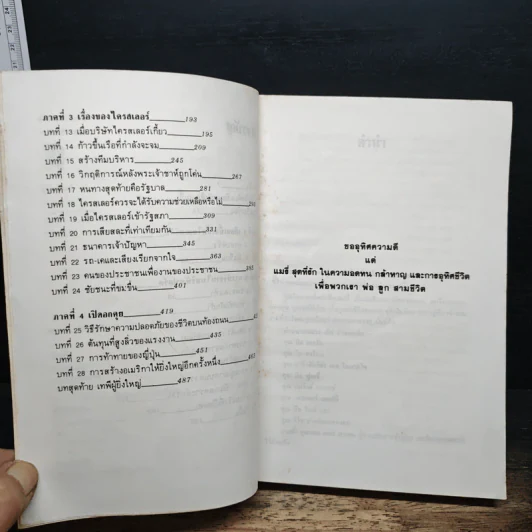 ภาคที่ 3 เรื่องของไครสเลอร์ 193
บทที่ 13 เมื่อบริษัทไครสเลอร์เกี้ยว 195
บทที่ 14 ก้าวขึ้นเรือที่กำลังจะจม 209
บทที่ 15 สร้างทีมบริหาร 245
บทที่ 16 วิกฤติการณ์หลังพระเจ้าชาห์ถูกโค่น 267
บทที่ 17 หนทางสุดท้ายคือรัฐบาล 281
บทที่ 18 ไครสเลอร์ควรจะได้รับความช่วยเหลือหรือไม่
บทที่ 19 เมื่อไครสเลอร์เข้ารัฐสภา 309
บทที่ 20 การเสียสละที่เท่าเทียมกัน 331
บทที่ 21 ธนาคารเจ้าปัญหา 345
บทที่ 22 รถ-เคและเสียงเรียกจากใจ 363
บทที่ 23 คนของประชาชนเพื่องานของประชาชน
บทที่ 24 ชัยชนะที่ขมขื่น
ภาคที่ 4 เปิดอกคุย 419
บทที่ 25 วิธีรักษาความปลอดภัยของชีวิตบนท้องถนน
บทที่ 26 ต้นทุนที่สูงลิ่วของแรงงาน 435
บทที่ 27 การท้าทายของญี่ปุ่น 451
บทที่ 28 การสร้างอเมริกาให้ยิ่งใหญ่อีกครั้งหนึ่ง
บทสุดท้าย เทพีผู้ยิ่งใหญ่ 487
ขออุทิศความดี
แด่
แมรี่ สุดที่รัก ในความอดทน กล้าหาญ และการอุทิศชีวิต
เพื่อพวกเรา พ่อ ลูก สามชีวิต